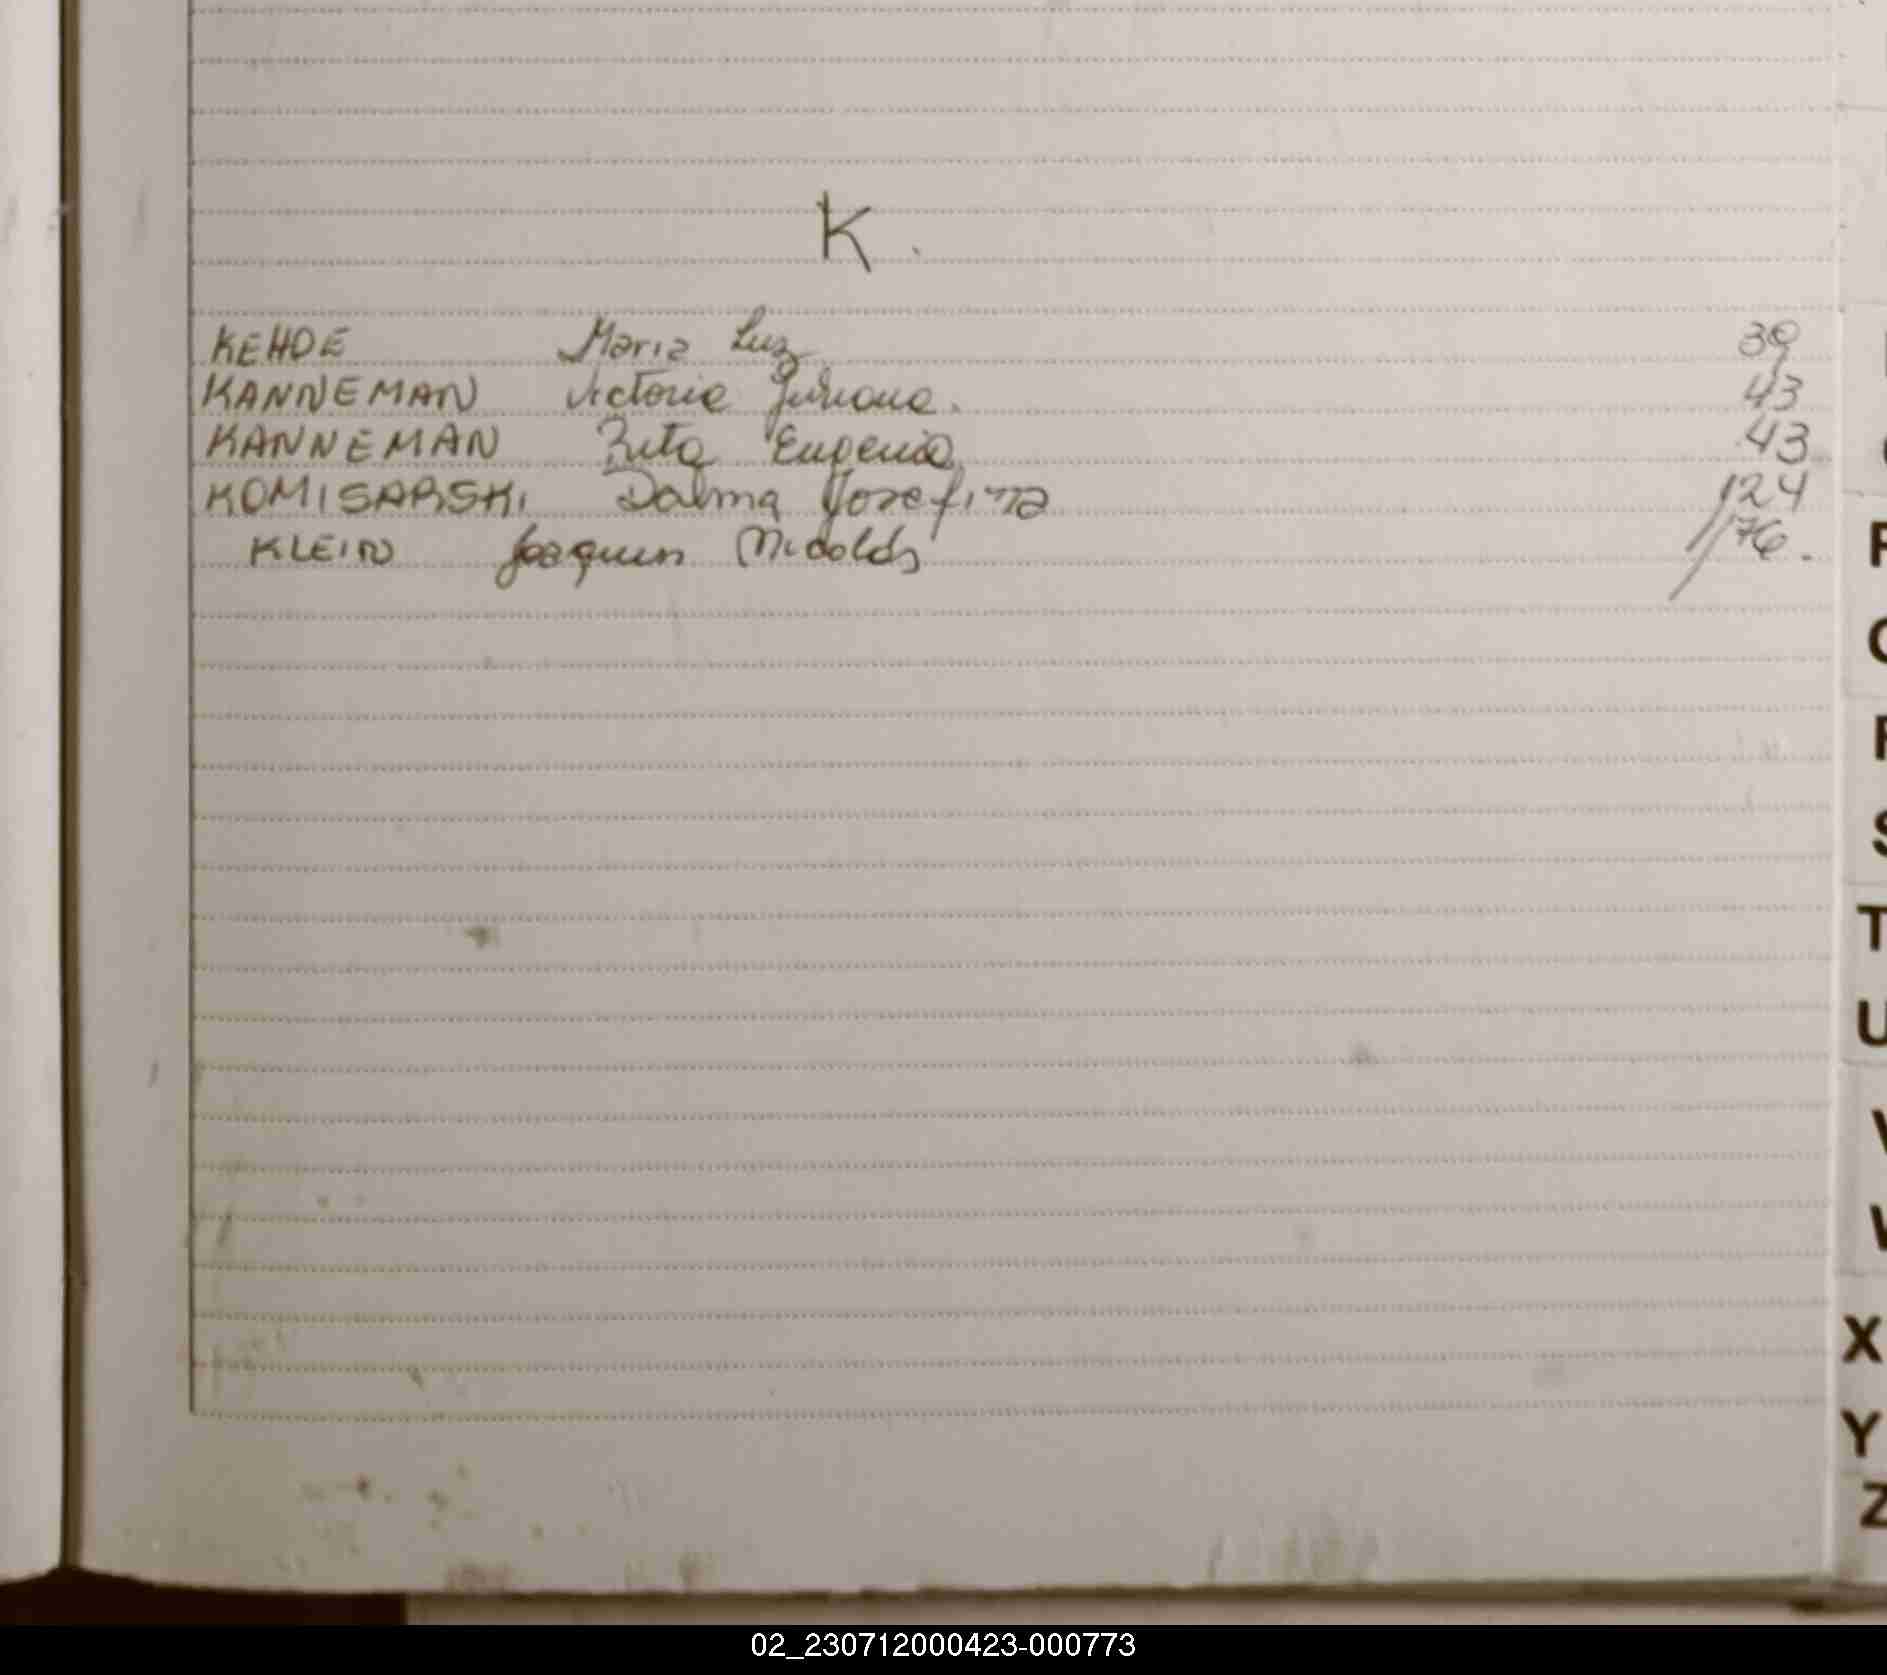 K.
KEHDE Maria Luz 39
KANNEMAN Victoria Juliana. 43
KANNEMAN Zita Eugenia 43
KOMISARSKI Dalma Josefina 124
KLEIN Joaquin Nicolás 76.
P
R
S
T
U
V
W
X
Y
Z
02_230712000423-000773